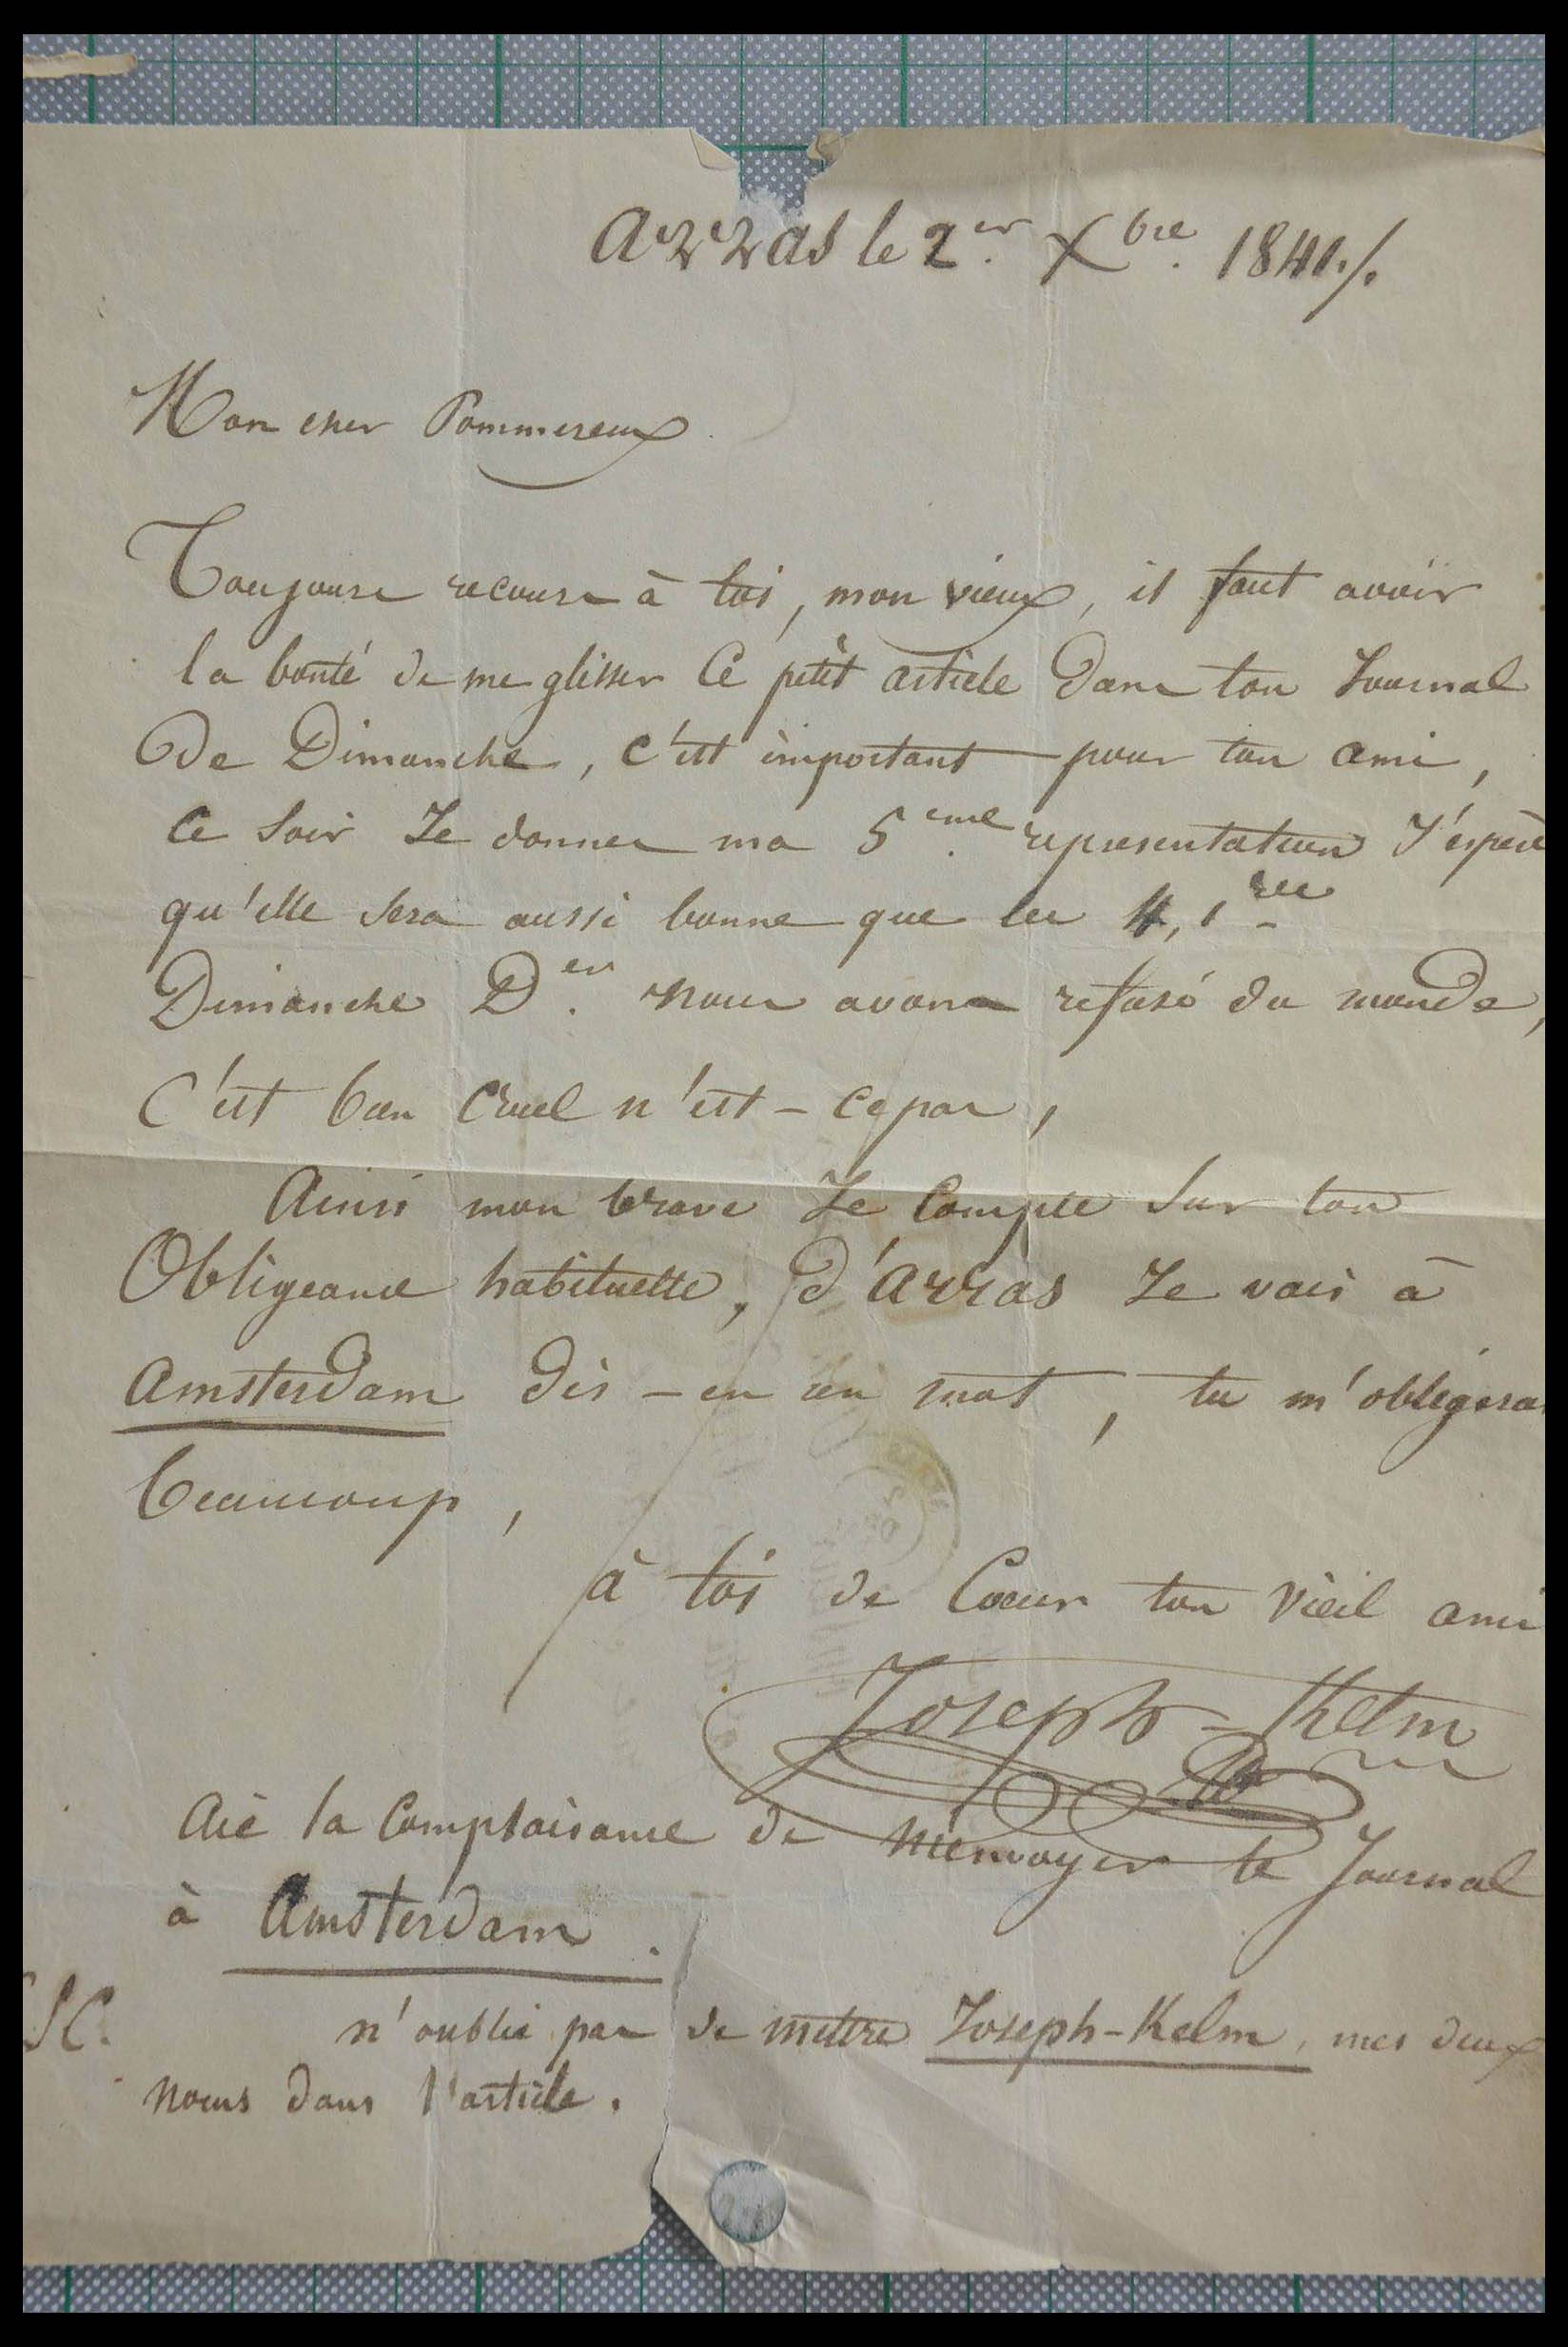 Arras le 2er. Xbre. 1841./.
Mon cher Pommereux
Toujours recours à toi, mon vieux, il faut avoir
la bonté de me glisser Ce petit article Dans ton Journal
De Dimanche, c'est important pour ton ami,
Ce Soir Je donne ma 5eme. representation J'espère
qu'elle sera aussi bonne que les 4, 1res
Dimanche Der. nous avons refusé du monde,
C'est bien cruel n'est-ce pas,
Ainsi mon brave Je Compte Sur ton
Obligeance habituelle, D'Arras Je vais à
Amsterdam Dis-en un mot, tu m'obligera
beaucoup,
à toi de Coeur ton vieil ami
Joseph-Kelm
Aie la Complaisance de m'envoyer le Journal
à Amsterdam.
n'oublie pas de mettre Joseph-Kelm, mes deux
noms dans l'article.